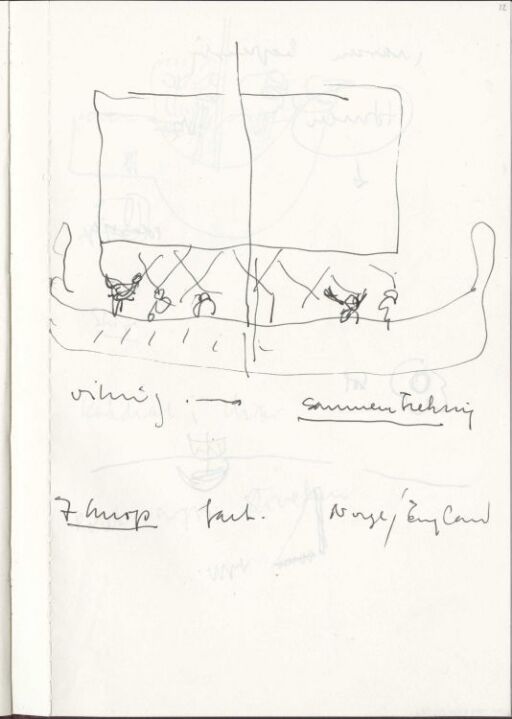 12
viking . → sammentrekning
7 knop fart. Norge/England